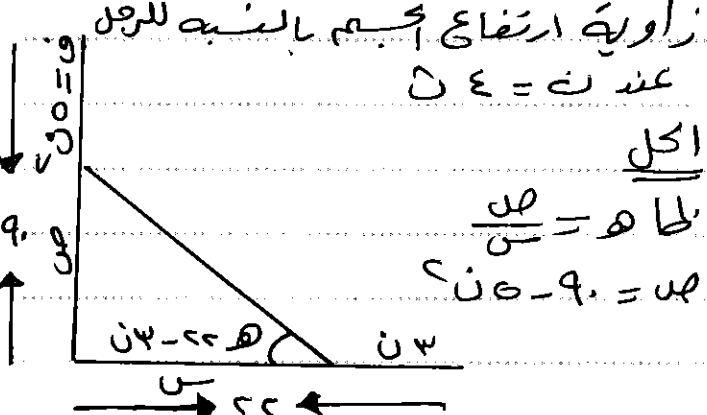 زاوية ارتفاع الجسم بالنسبه للرجل
عند ن = ٤ ث
الحل
ظا هـ = ص/س
ص = ٩٠ - ٥ن٢
ف = ٥ن٢
٩٠
ص
هـ
٢٢-٣ن
٣ن
س
٢٢